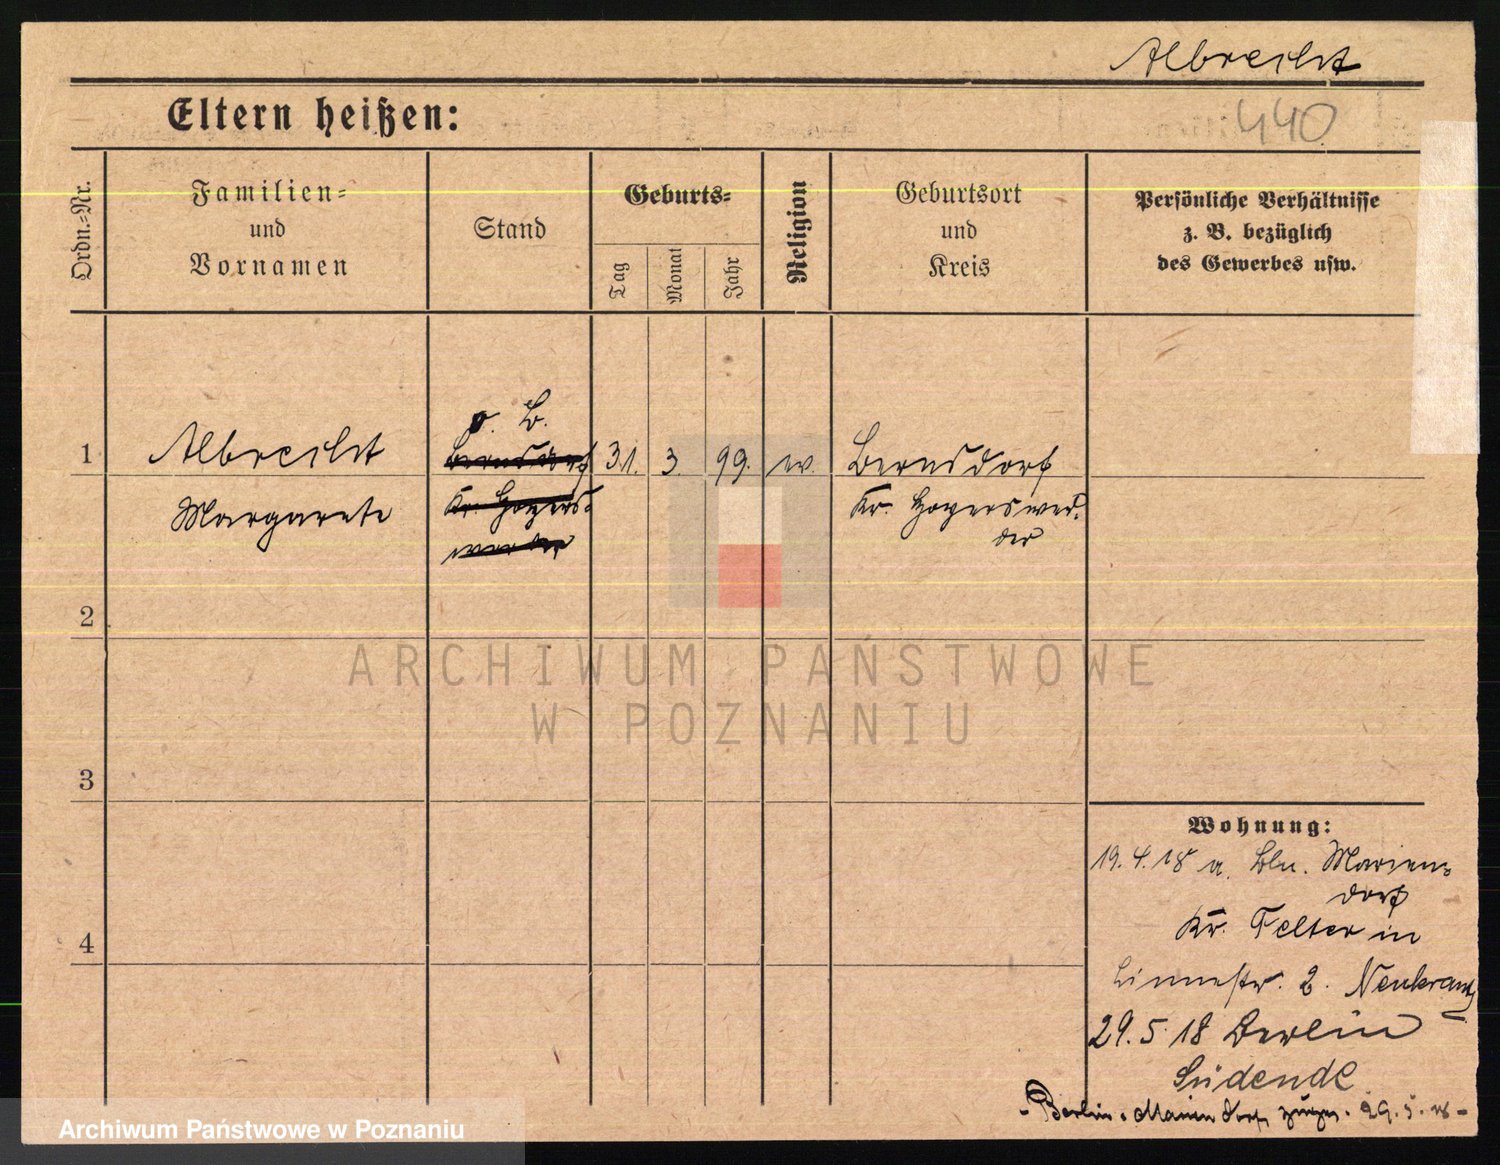 Albrecht
Eltern heißen:
440
Ordn.=Nr.
Familien=
und
Vornamen
Stand
Geburts=
Tag
Monat
Jahr
Religion
Geburtsort
und
Kreis
Persönliche Verhältnisse
z. B. bezüglich
des Gewerbes usw.
1
Albrecht
Margarete
o. B.
Bernsdorf
Kr. Hoyers=
werda
31. 3. 99. ev.
Bernsdorf
Kr. Hoyerswer=
der
2
ARCHIWUM PAŃSTWOWE
W POZNANIU
3
Wohnung:
19.4.18 a. Bln. Marien=
dorf
Kr. Teltow in
Linnestr. 2. Neukrantz
4
29.5.18 Berlin
Südende
- Berlin-Mariendorf 29.5.18 -
Archiwum Państwowe w Poznaniu